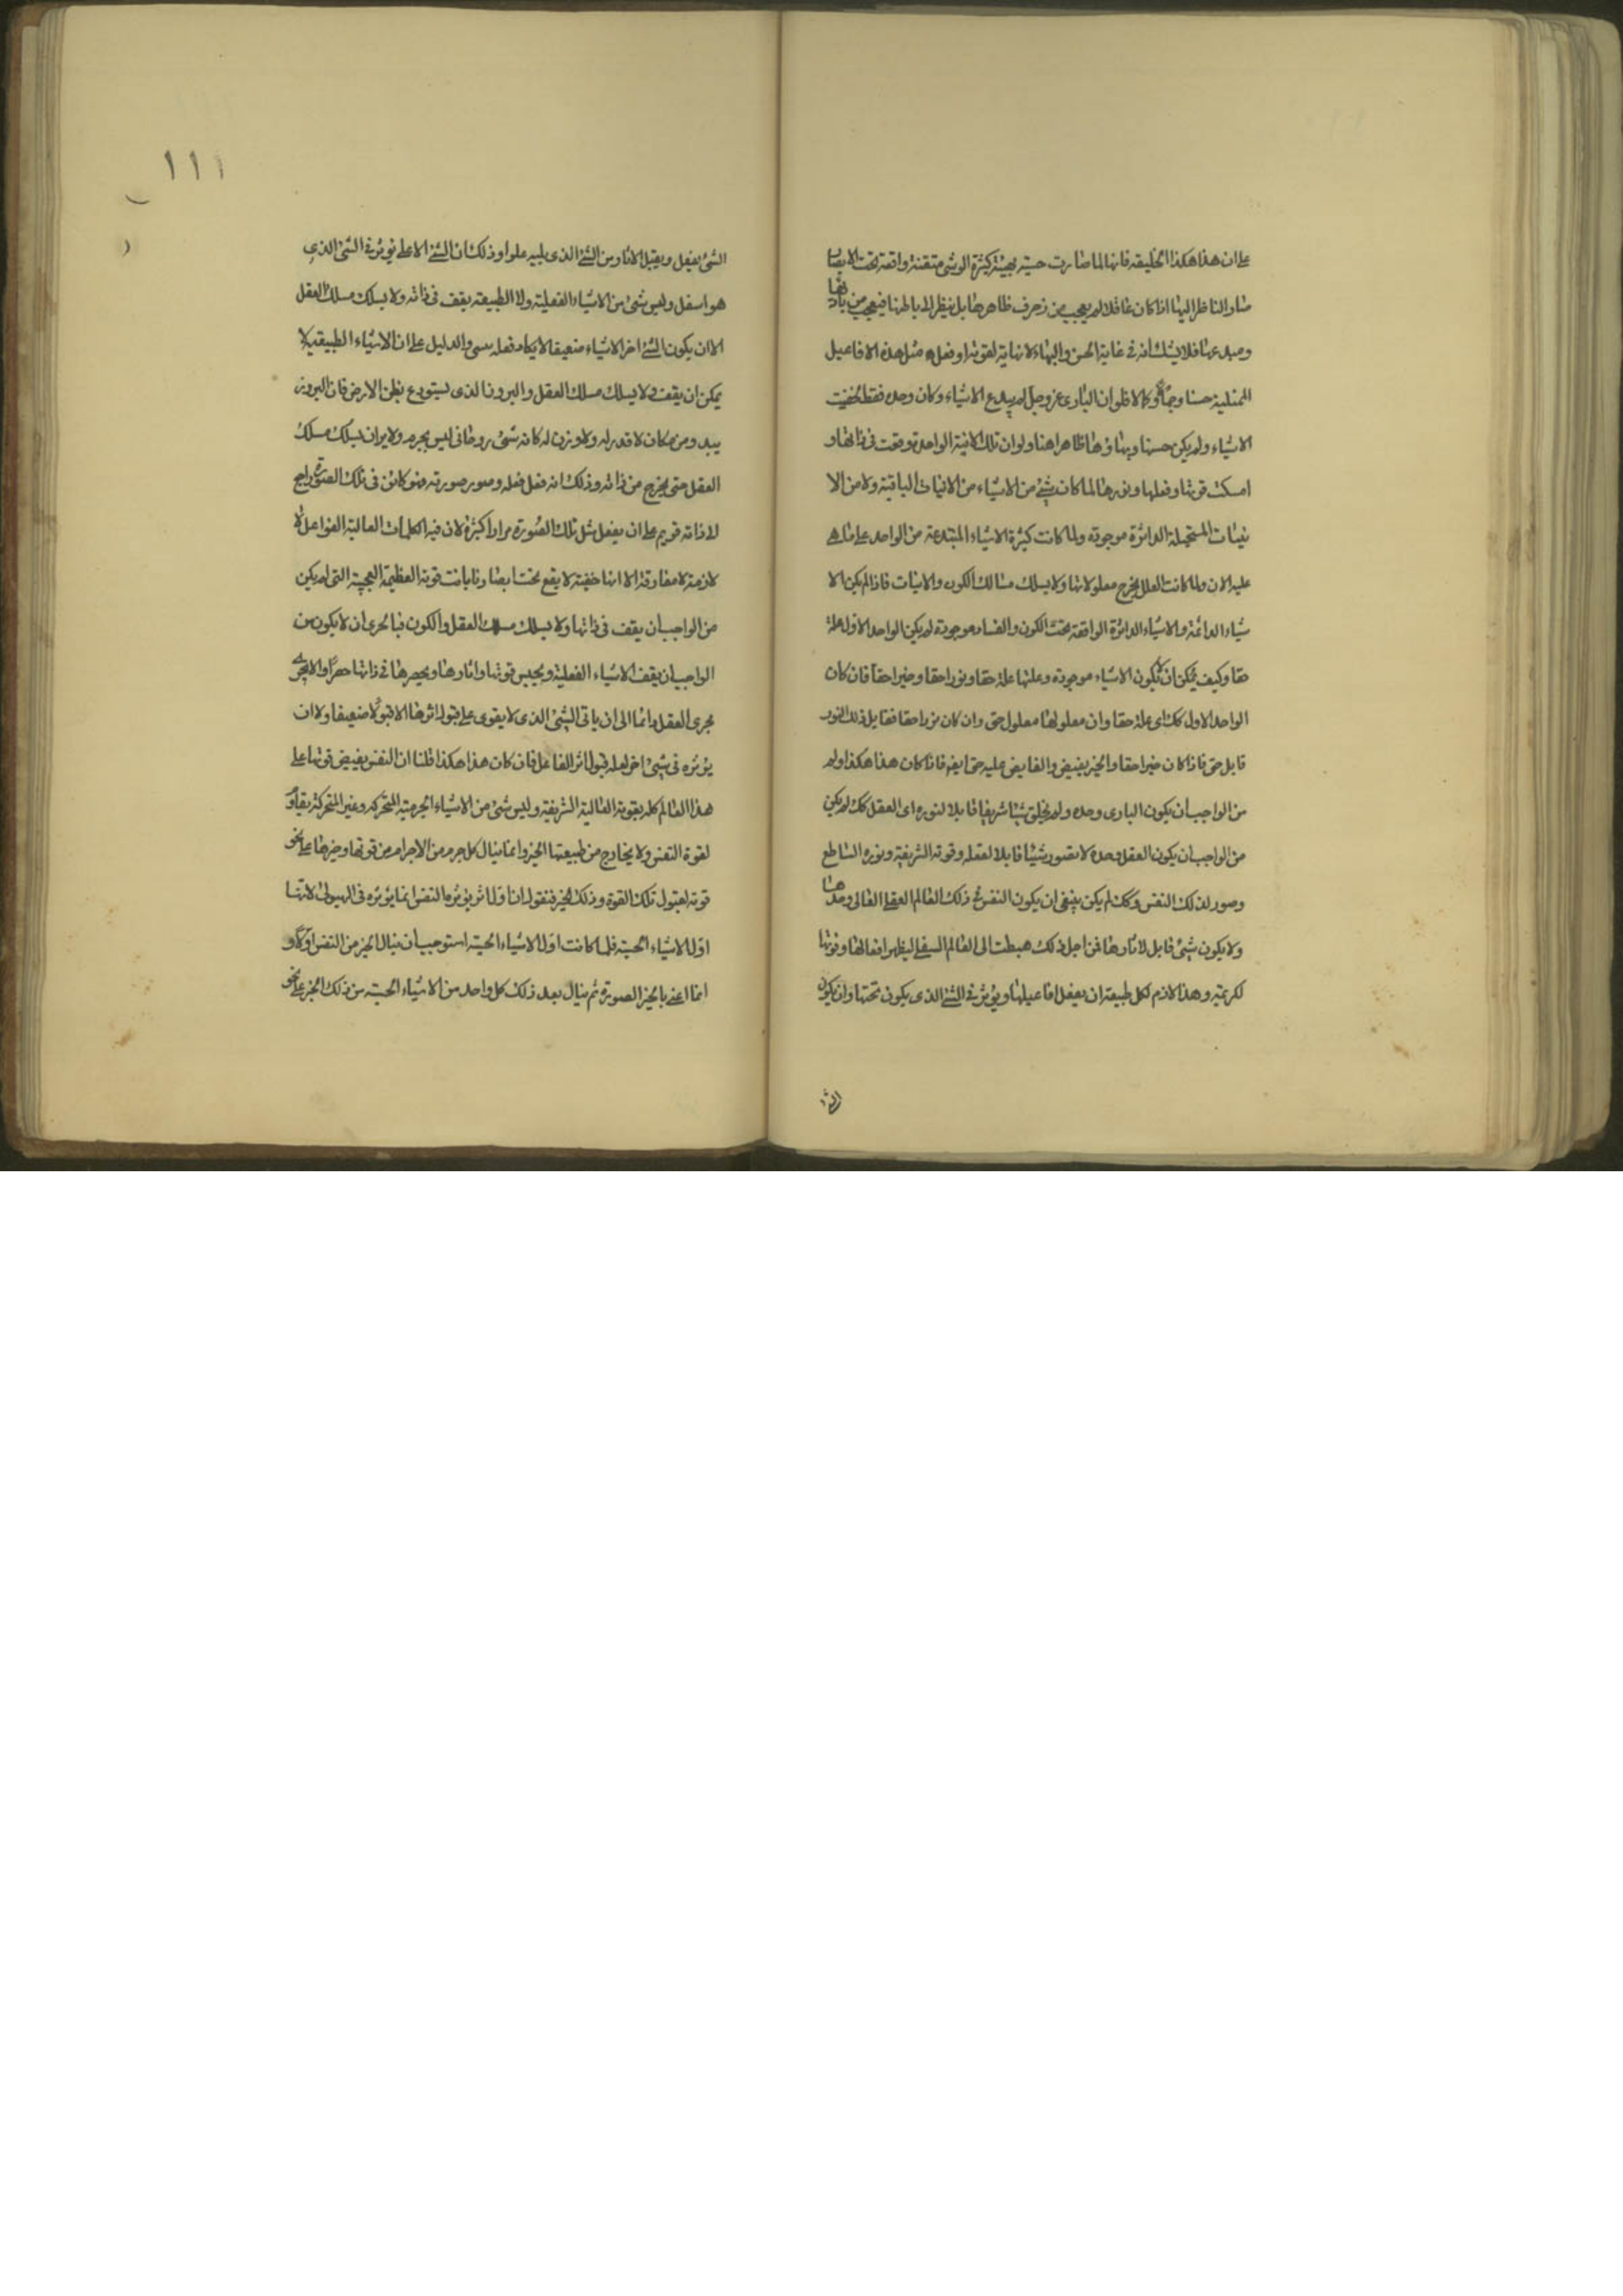 على ان هذا هكذا الخليقة فانها لما صارت حسية بهية كثيرة الوشى متقنة واقعة تحت الابصار
صار الناظر اليها اذا كان عاقلا لم يعجب من زخرف ظاهرها بل ينظر الى باطنها فيعجب من باريها
ومبدعها فلا يشك انه فى غاية الحسن والبهاء لا نهاية لقوته اذ فعل مثل هذه الافاعيل
الممتلية حسنا وجمالا وكمالا فلو ان البارى عز وجل لم يبدع الاشياء وكان وحده فقط لخفيت
الاشياء ولم يكن حسنها وبهاؤها ظاهرا هنا ولو ان تلك الانية الواحدة وقفت فى ذاتها و
امسكت قوتها وفعلها ونورها لما كان شىء من الاشياء من الانيات الباقية ولا من الا
نيات المستحيلة الداثرة موجودة ولما كانت كثرة الاشياء المبتدعة من الواحد على ما هى
عليه الان ولما كانت العلل يخرج معلولاتها ولا يسلك مسالك الكون والانيات فاذا لم يكن الا
شياء الدائمة والاشياء الداثرة الواقعة تحت الكون والفساد موجودة لم يكن الواحد الاول علة
حقا وكيف يمكن ان لا يكون الاشياء موجودة وعلتها علة حقا ونورا حقا وخيرا حقا فان كان
الواحد الاول كك اى علة حقا وان معلولها معلول حق وان كان نورا حقا فقابل ذلك النور
قابل حق فاذا كان خيرا حقا والخير يفيض والفايض عليه حق ايض فاذا كان هذا هكذا ولم
من الواجب ان يكون البارى وحده ولم يخلق شيئا شريفا قابلا لنوره اى العقل كك لم يكن
من الواجب ان يكون العقل وحده لا يتصور شيئا قابلا لفعله وقوته الشريفة ونوره الساطع
وصور لذلك النفس وكك لم يكن ينبغى ان يكون النفس فى ذلك العالم العقلى العالى وحدها
ولا يكون شىء قابل لاثارها فمن اجل ذلك هبطت الى العالم السفلى ليظهر افعالها وقوتها
لكريمة وهذا لازم لكل طبيعة ان يفعل افاعيلها ويؤثر فى الشىء الذى يكون تحتها وان يكون
الشى
١١١
الشىء يفعل ويقبل الاثار من الشىء الذى يليه علوا وذلك ان الشىء الاعلى يؤثر فى الشىء الذى
هو اسفل وليس شىء من الاشياء الفعلية ولا الطبيعة يقف فى ذاته ولا يسلك مسلك العقل
الا ان يكون الشىء اخر الاشياء ضعيفا لا يكاد فعله والدليل على ان الاشياء الطبيعية لا
يمكن ان يقف ولا يسلك مسلك العقل والبرور الذى يستودع بطن الارض فان البرور
يبدو من مكان لا قدر له ولا وزن له كانه شىء روحانى ليس بجرم ولا يزال يسلك مسلك
العقل حتى يخرج من ذاته وذلك انه فعل فعله وصور صورته فهو كائن فى تلك الصورة راجع
الى ذاته قويم على ان يفعل مثل تلك الصورة مرارا كثيرة لان فيه الكلمات العالية الفواعل لا
لازمة لا مفارقة الا انها خفية لا يقع تحت ابصارنا بانت قوته العظيمة العجيبة التى لم يكن
من الواجب ان يقف فى ذاتها ولا يسلك مسلك العقل والكون فبا لحرى ان لا يكون من
الواجب ان يقف الاشياء الفعلية ويحبس قوتها واثارها ويحصرها فى ذاتها حصرا والا يجرى
مجرى العقل دائما الى ان ياتى الشىء الذى لا يقوى على قبول اثرها الا قبولا ضعيفا ولا ان
يؤثره فى شىء اخر لعله قبول اثر الفاعل فان كان هذا هكذا قلنا ان النفس يفيض قوتها على
هذا العالم كله بقوته العالية الشريفة وليس شىء من الاشياء الجرمية المتحركة وغير المتحركة بقاو
لقوة النفس ولا بخارج من طبيعتها الخير وانما ينال كل جرم من الاجرام من قوتها وخيرها على نحو
قوته لقبول تلك القوة وذلك الخير فنقول ان اول اثر يؤثره النفس انما يؤثره فى الهيولى لانها
اول الاشياء الحسية فلما كانت اول الاشياء الحسية استوجب ان ينال الخير من النفس اولا و
انما اعنى بالخير الصورة ثم ينال بعد ذلك كل واحد من الاشياء الحسية من ذلك الخير على نحو